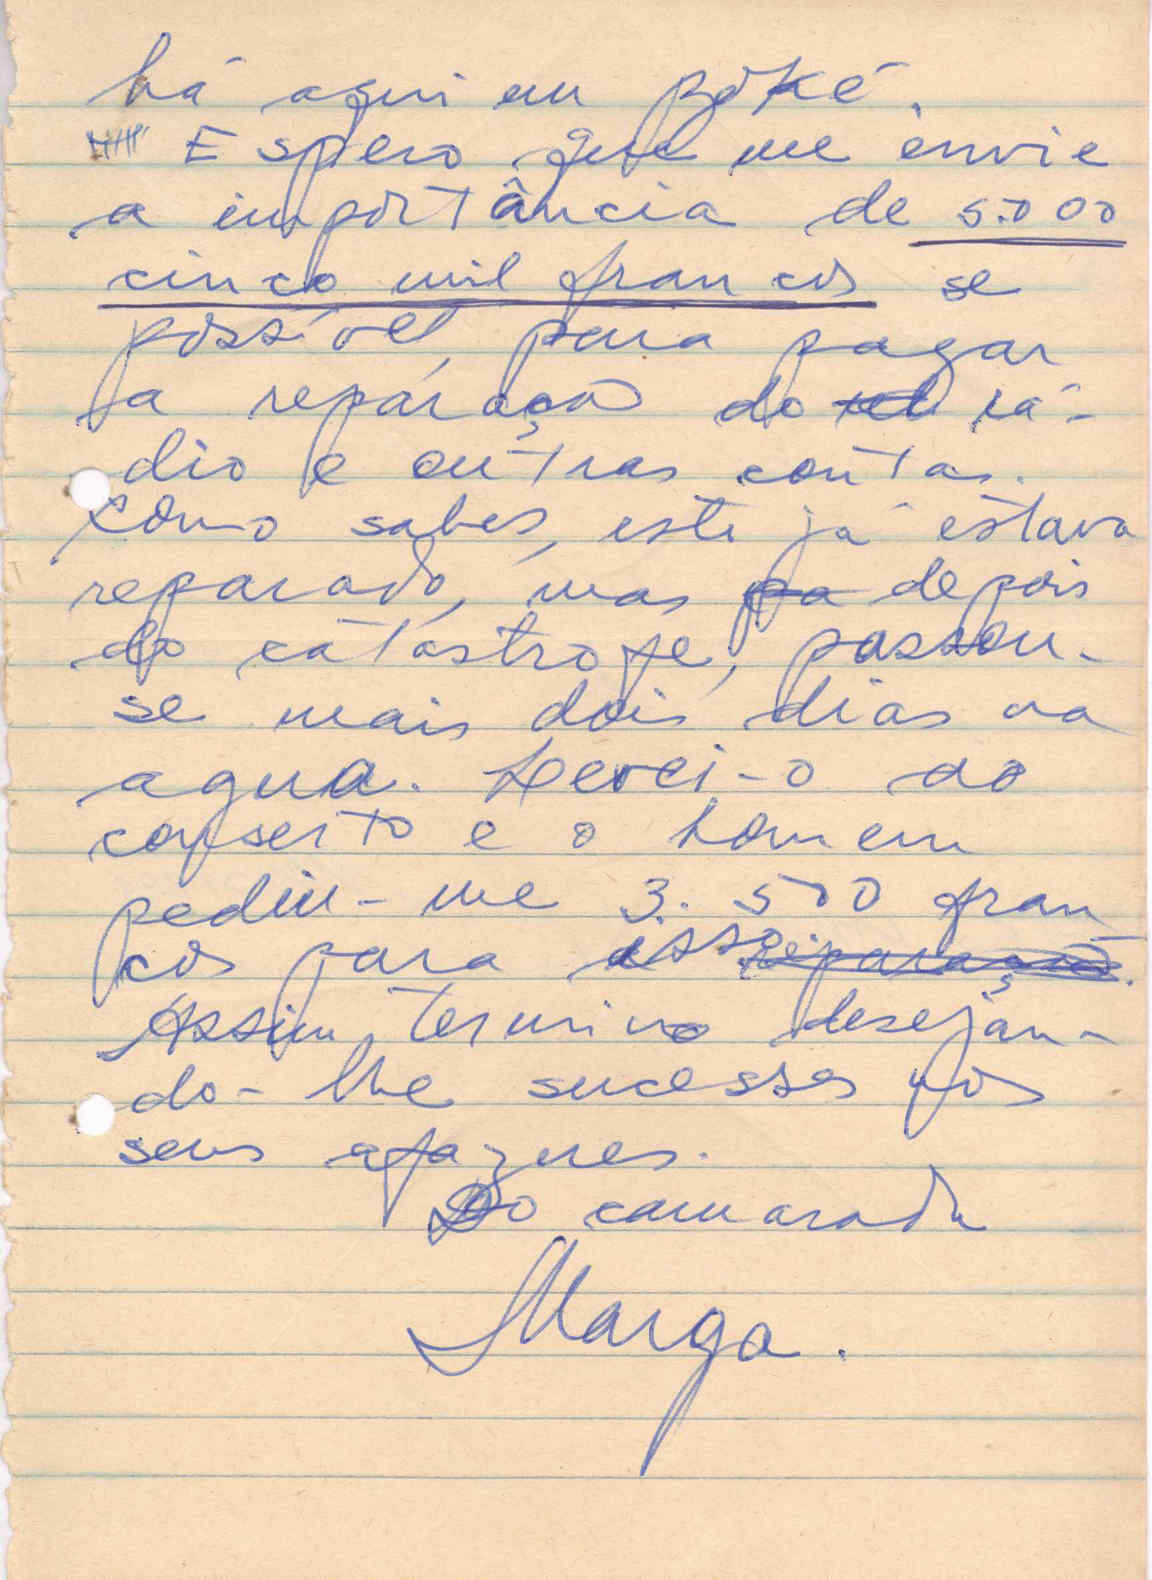 há aqui em Bôké.
Espero que me envie
a importância de 5.000
cinco mil francos se
possível, para pagar
a reparação do rá-
dio e outras contas.
Como sabes, este já estava
reparado, mas depois
do catástrofe, passou-
se mais dois dias na
agua. Levei-o ao
conserto e o homem
pediu-me 3.500 fran
cos para isso
Assim termino desejan-
do-lhe sucessos nos
seus afazeres.
Do camarada
Marga.